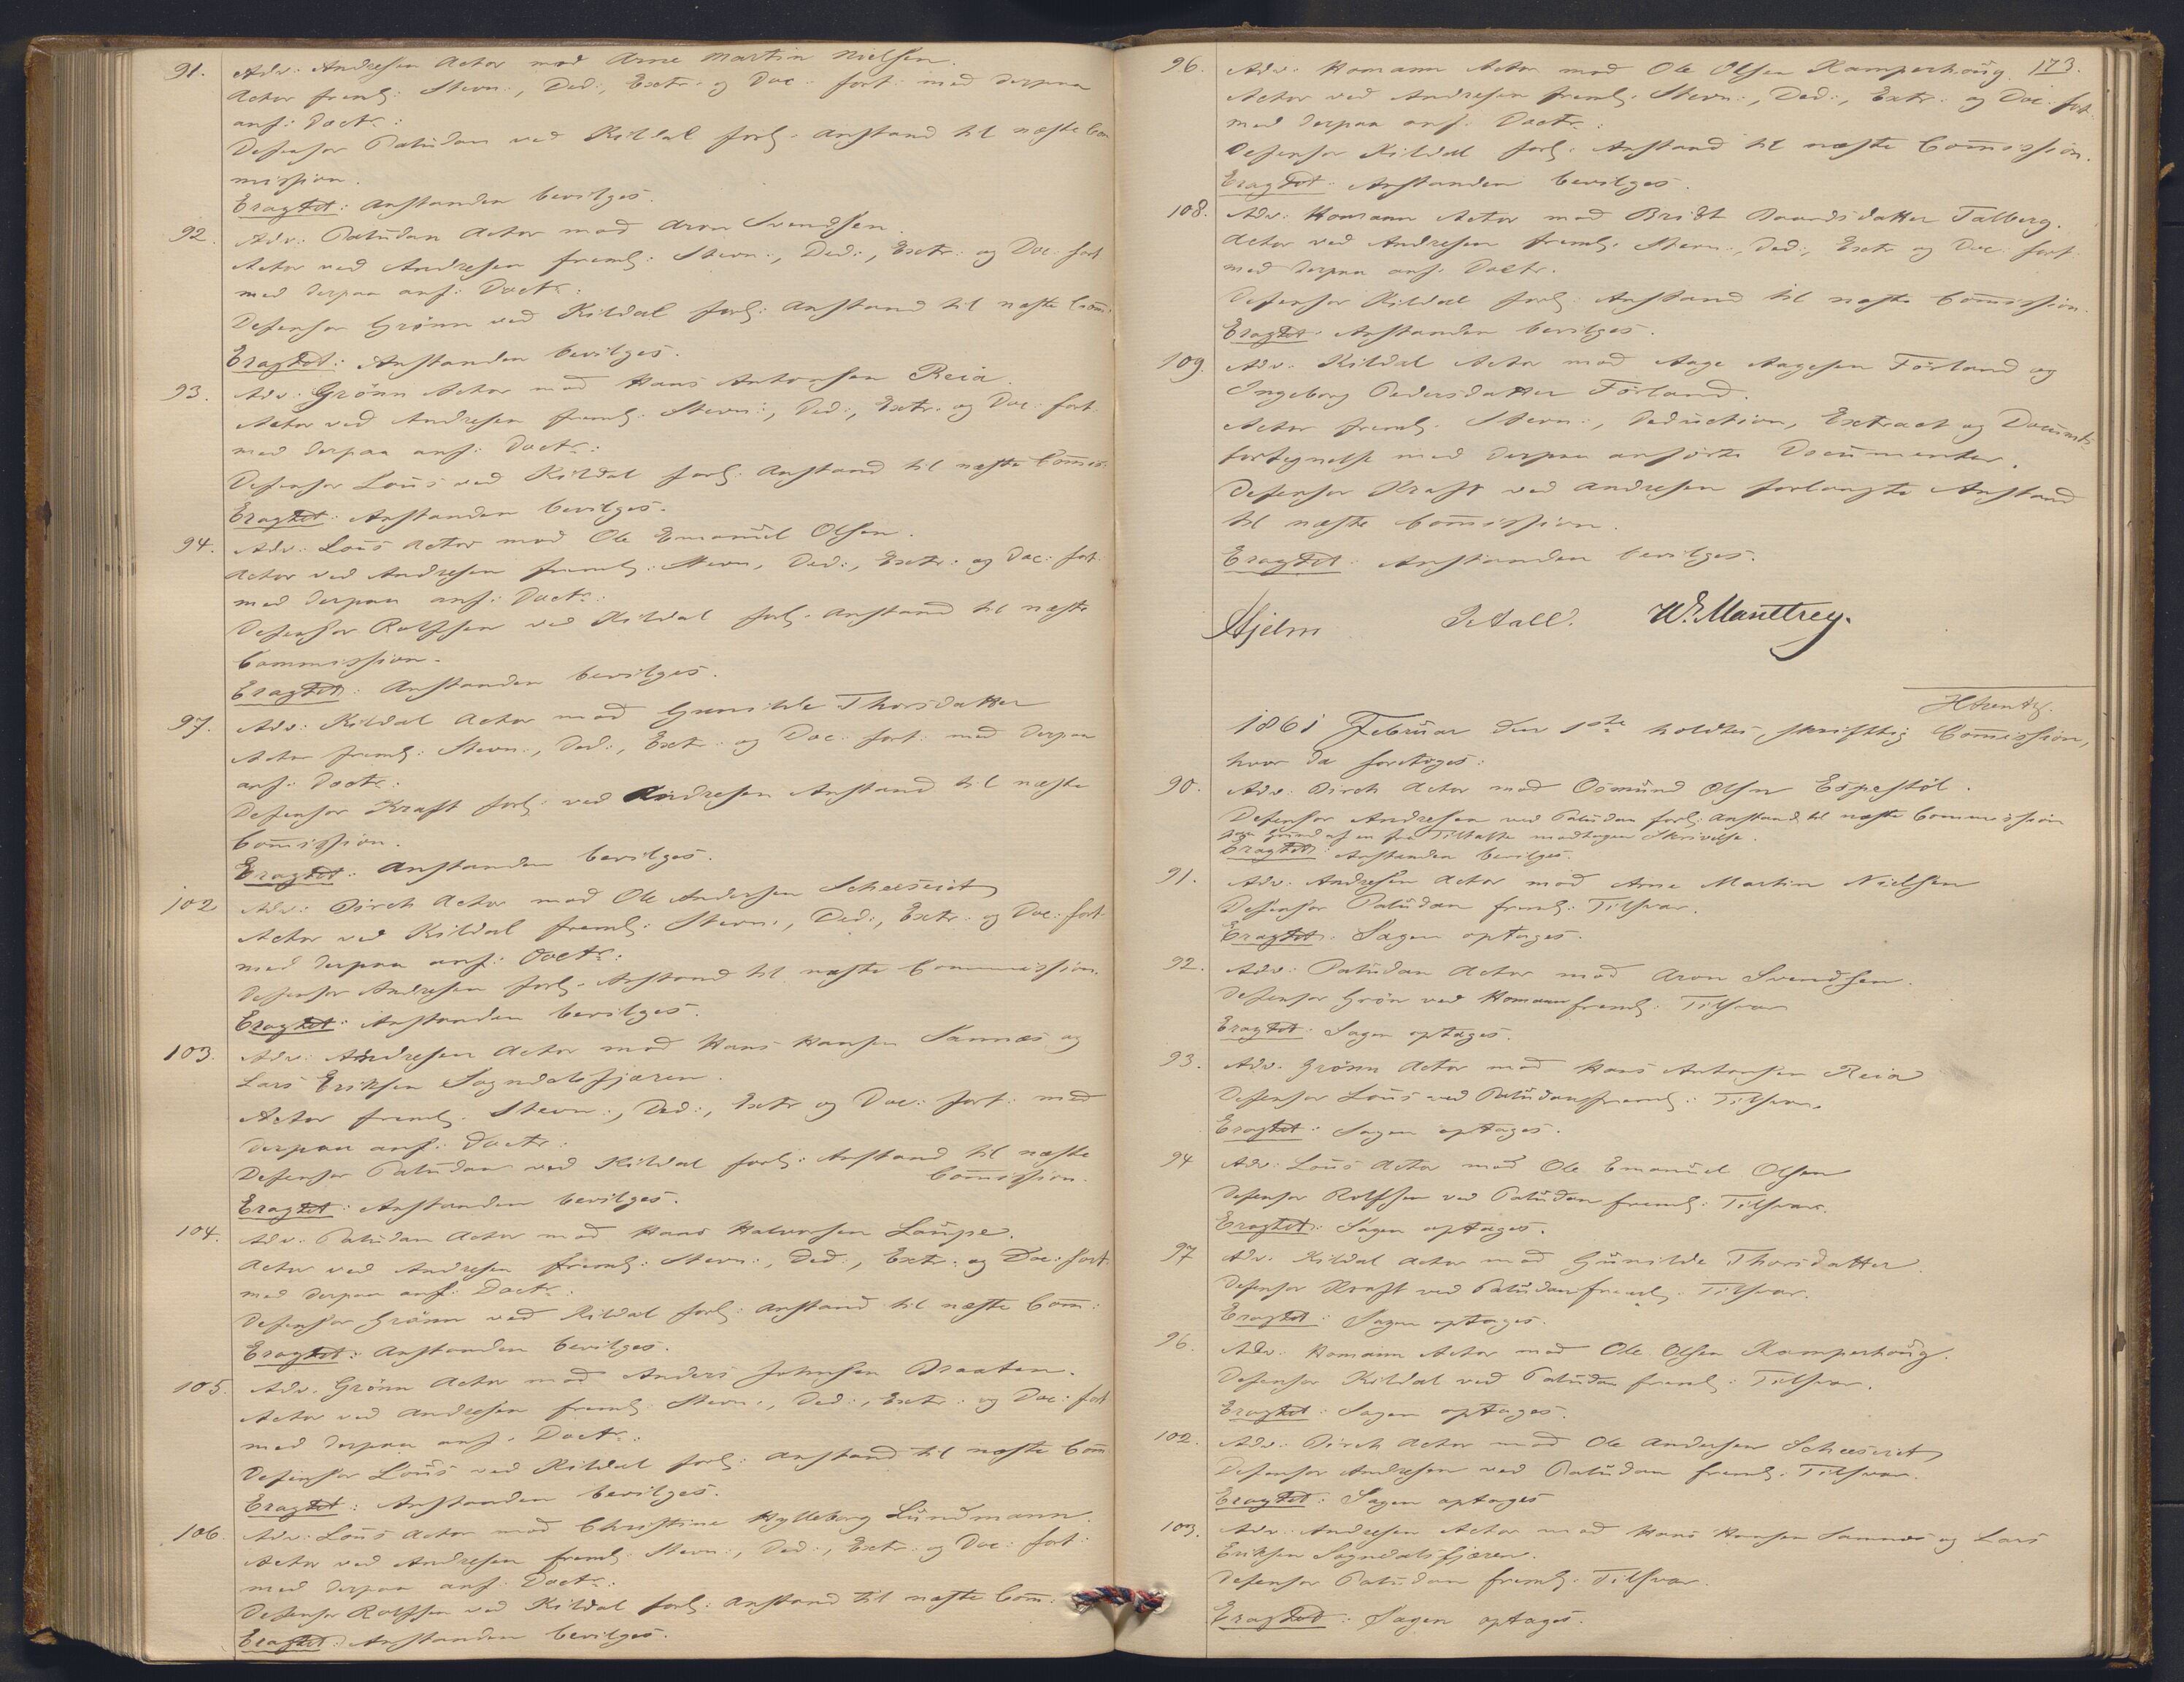 91. Adv: Andresen Actor mod Arne Martin Nielsen.
Actor freml: Stevn:, Ded:, Extr: og Doc: fort: med derpaa
anf: Doctr:
Defensor Paludan ved Kildal forl: Anstand til næste Com
mission.
Eragtet: Anstanden bevilges.
92. Adv: Paludan Actor mod Aron Svendsen.
Actor ved Andresen freml: Stevn:, Ded:, Extr: og Doc: fort
med derpaa anf: Doctr:
Defensor Grönn ved Kildal forl: Anstand til næste Com:
Eragtet: Anstanden bevilges.
93. Adv: Grönn Actor mod Hans Antonsen Reia.
Actor ved Andresen freml: Stevn:, Ded:, Extr: og Doc: fort.
med derpaa anf: Doctr:
Defensor Lous ved Kildal forl: Anstand til næste Commis:
Eragtet: Anstanden bevilges.
94. Adv: Lous Actor mod Ole Emanuel Olsen.
Actor ved Andresen freml: Stevn, Ded:, Extr: og Doc: fort.
med derpaa anf: Doctr:
Defensor Rolfsen ved Kildal forl: Anstand til næste
Commission.
Eragtet: Anstanden bevilges.
97. Adv: Kildal Actor mod Gunilde Thorsdatter
Actor freml: Stevn:, Ded:, Extr: og Doc: fort: med derpaa
anf: Doctr:
Defensor Kraft forl: ved Andresen Anstand til næste
Commission.
Eragtet: Anstanden bevilges.
102 Adv: Birch Actor mod Ole Andersen
Actor ved Kildal freml: Stevn:, Ded:, Extr: og Doc: fort
med derpaa anf: Doctr:
Defensor Andresen forl: Anstand til næste Commission.
Eragtet: Anstanden bevilges.
103. Adv: Andresen Actor mod Hans Hansen Sannæs og
Lars Eriksen Sogndalsfjæren.
Actor freml: Stevn:, Ded:, Extr og Doc: fort: med
derpaa anf: Doctr:
Defensor Paludan ved Kildal forl: Anstand til næste
Commission.
Eragtet: Anstanden bevilges.
104. Adv: Paludan Actor mod Hans Halvorsen Laupe.
Actor ved Andresen freml: Stevn:, Ded:, Extr: og Doc: fort.
med derpaa anf: Doctr:
Defensor Grönn ved Kildal forl: Anstand til næste Com:
Eragtet: Anstanden bevilges.
105. Adv: Grönn Actor mod Anders Johnsen Braaten.
Actor ved Andresen freml: Stevn:, Ded:, Extr: og Doc: fort
med derpaa anf: Doctr:
Defensor Lous ved Kildal forl: Anstand til næste Com
Eragtet: Anstanden bevilges.
106. Adv: Lous Actor mod Christine Hylleborg Lundmann.
Actor ved Andresen freml: Stevn:, Ded:, Extr: og Doc: fort:
med derpaa anf: Doctr:
Defensor Rolfsen ved Kildal forl: Anstand til næste Com:
Eragtet: Anstanden bevilges.
173.
96. Adv: Homann Actor mod Ole Olsen Kamperhaug.
Actor ved Andresen freml: Stevn:, Ded:, Extr: og Doc: fort.
med derpaa anf: Doctr:
Defensor Kildal forl: Anstand til næste Commission.
Eragtet: Anstanden bevilges.
108. Adv: Homann Actor mod Brit Baardsdatter Talberg.
Actor ved Andresen freml: Stevn:, Ded:, Extr og Doc: fort:
med derpaa anf: Doctr.
Defensor Kildal forl: Anstand til næste Commission.
Eragtet: Anstanden bevilges.
109. Adv: Kildal Actor mod Aage Aagesen Förland og
Ingeborg Pedersdatter Förland.
Actor freml: Stevn:, Deduction, Extract og Documents
fortegnelse med derpaa anförte Documenter.
Defensor Kraft ved Andresen forlangte Anstand
til næste Commission.
Eragtet: Anstanden bevilges.
Hjelm
1861 Februar den 1ste holdtes skriftlig Commission,
hvor da foretoges:
90. Adv: Birch Actor mod Osmund Olsen Espestöl.
Defensor Andresen ved Paludan forl: Anstand til næste Commission
paa Grund af en fra Tiltalte modtagen Skrivelse.
Eragtet: Anstanden bevilges.
91. Adv: Andresen Actor mod Arne Martin Nielsen
Defensor Paludan freml: Tilsvar.
Eragtet: Sagen optages.
92. Adv: Paludan Actor mod Aron Svendsen.
Defensor Grön ved Homann freml: Tilsvar
Eragtet: Sagen optages.
93. Adv. Grönn Actor mod Hans Antonsen Reia
Defensor Lous ved Paludan freml: Tilsvar.
Eragtet: Sagen optages.
94 Adv: Lous Actor mod Ole Emanuel Olsen
Defensor Rolfsen ved Paludan freml: Tilsvar.
Eragtet: Sagen optages.
97 Adv. Kildal Actor mod Gunilde Thorsdatter.
Defensor Kraft ved Paludan freml: Tilsvar.
Eragtet: Sagen optages.
96. Adv: Homann Actor mod Ole Olsen Kamperhaug.
Defensor Kildal ved Paludan freml: Tilsvar.
Eragtet: Sagen optages.
102. Adv: Birch Actor mod Ole Andersen
Defensor Andresen ved Paludan freml: Tilsvar.
Eragtet: Sagen optages
103. Adv: Andresen Actor mod Hans Hansen Sannæs og Lars
Eriksen Sogndalsfjæren.
Defensor Paludan freml: Tilsvar.
Eragtet: Sagen optages.